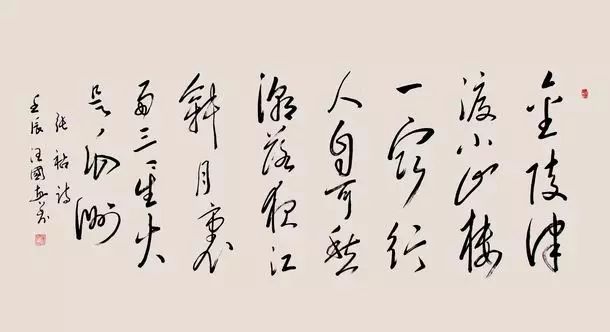 金陵津
渡小山楼
一宿行
人自可愁
潮落夜江
斜月裏
两三星火
是瓜洲
张祜诗
壬辰 汪國真书